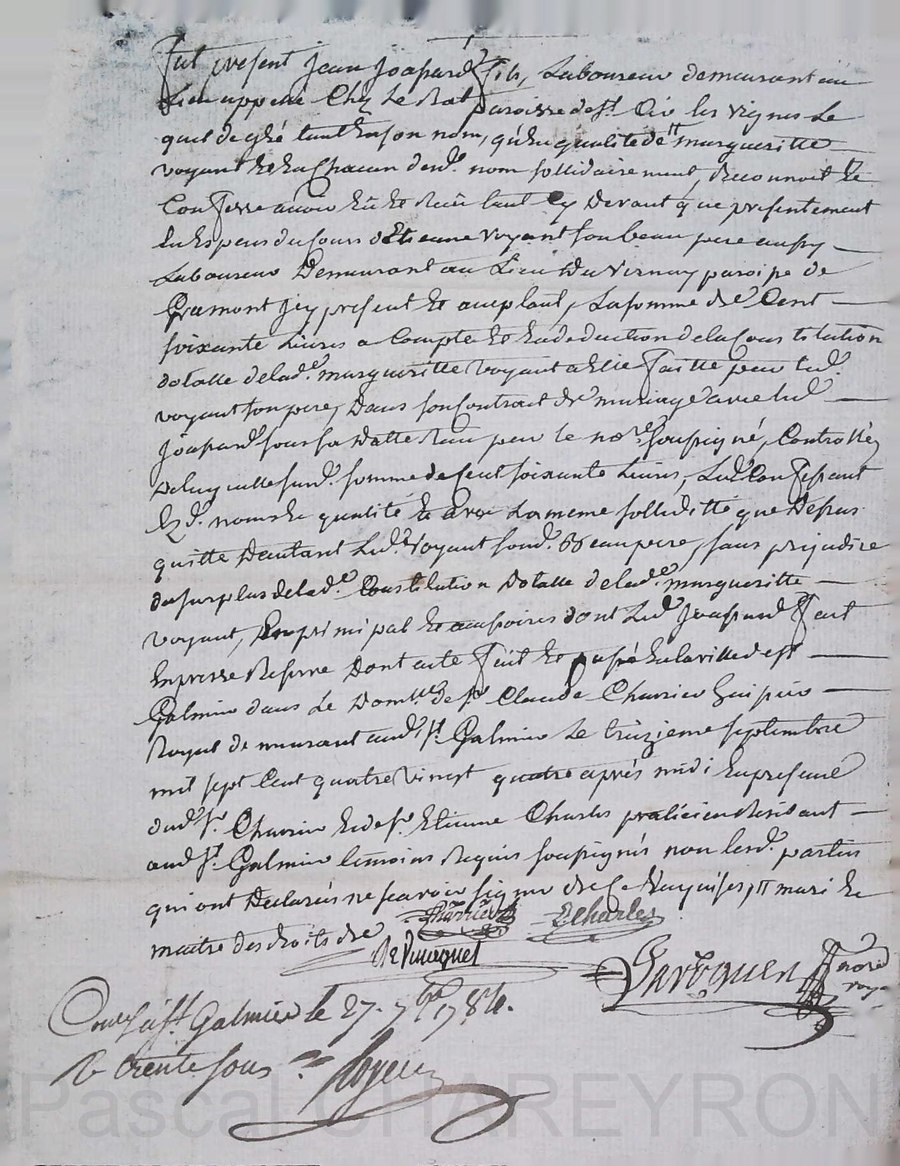 Fut present Jean Joapard fils, Laboureur demeurant au
Lieu appellé Chez Le Rat paroisse de St. Cir les vignes Le
quel de gré tant En son nom, qu'En qualité de M margueritte
voyant Et En Chacun desd. nom sollidairement, reconnoit Et
Confesse avoir Eü Et Reçû tant Cy Devant que presentement
En Espece du Cours d'Etienne voyant son beau pere aussy
Laboureur Demeurant au Lieu Du Vernay paroisse de
Gramont Icy present Et aceptant, La somme de Cent
soixante Livres a Compte Et En deduction de la Constitution
dotalle de lad. margueritte Voyant a Elle faitte par led.
voyant son pere, Dans son Contrat de mariage avec led.
Joapard sous sa Datte Reçu par le nore. soussigné, Controllé,
De laquelle susd. somme de Cent soixante Livres, Led. Confessant
Ezd. noms Et qualité Et avec La meme solliditté que Dessus
quitte D'autant Led. Voyant sond. Beaupere, sans prejudice
du surplus de lad. Constitution Dotalle de lad. margueritte
voyant, En principal Et accessoires dont Led. Joapard fait
Expresse Reserve Dont acte fait Et passé En la ville de St
Galmier dans Le Domlle. de sr Claude Charrier huissier
Royal demeurant aud. St. Galmier Le treizieme septembre
mil sept Cent quatre vingt quatre après midi En presence
dud. sr. Charrier Et de sr. Etienne Charles praticien Residant
aud. St. Galmier temoins Requis soussignés non lesd. parties
qui ont Declarés ne sçavoir signer de Ce Enquises, M mari Et
maitre des droits de
Charrier
E Charles
Con. a St. Galmier le 27. 7bre 1784.
R trente sous
Pascal CHAREYRON